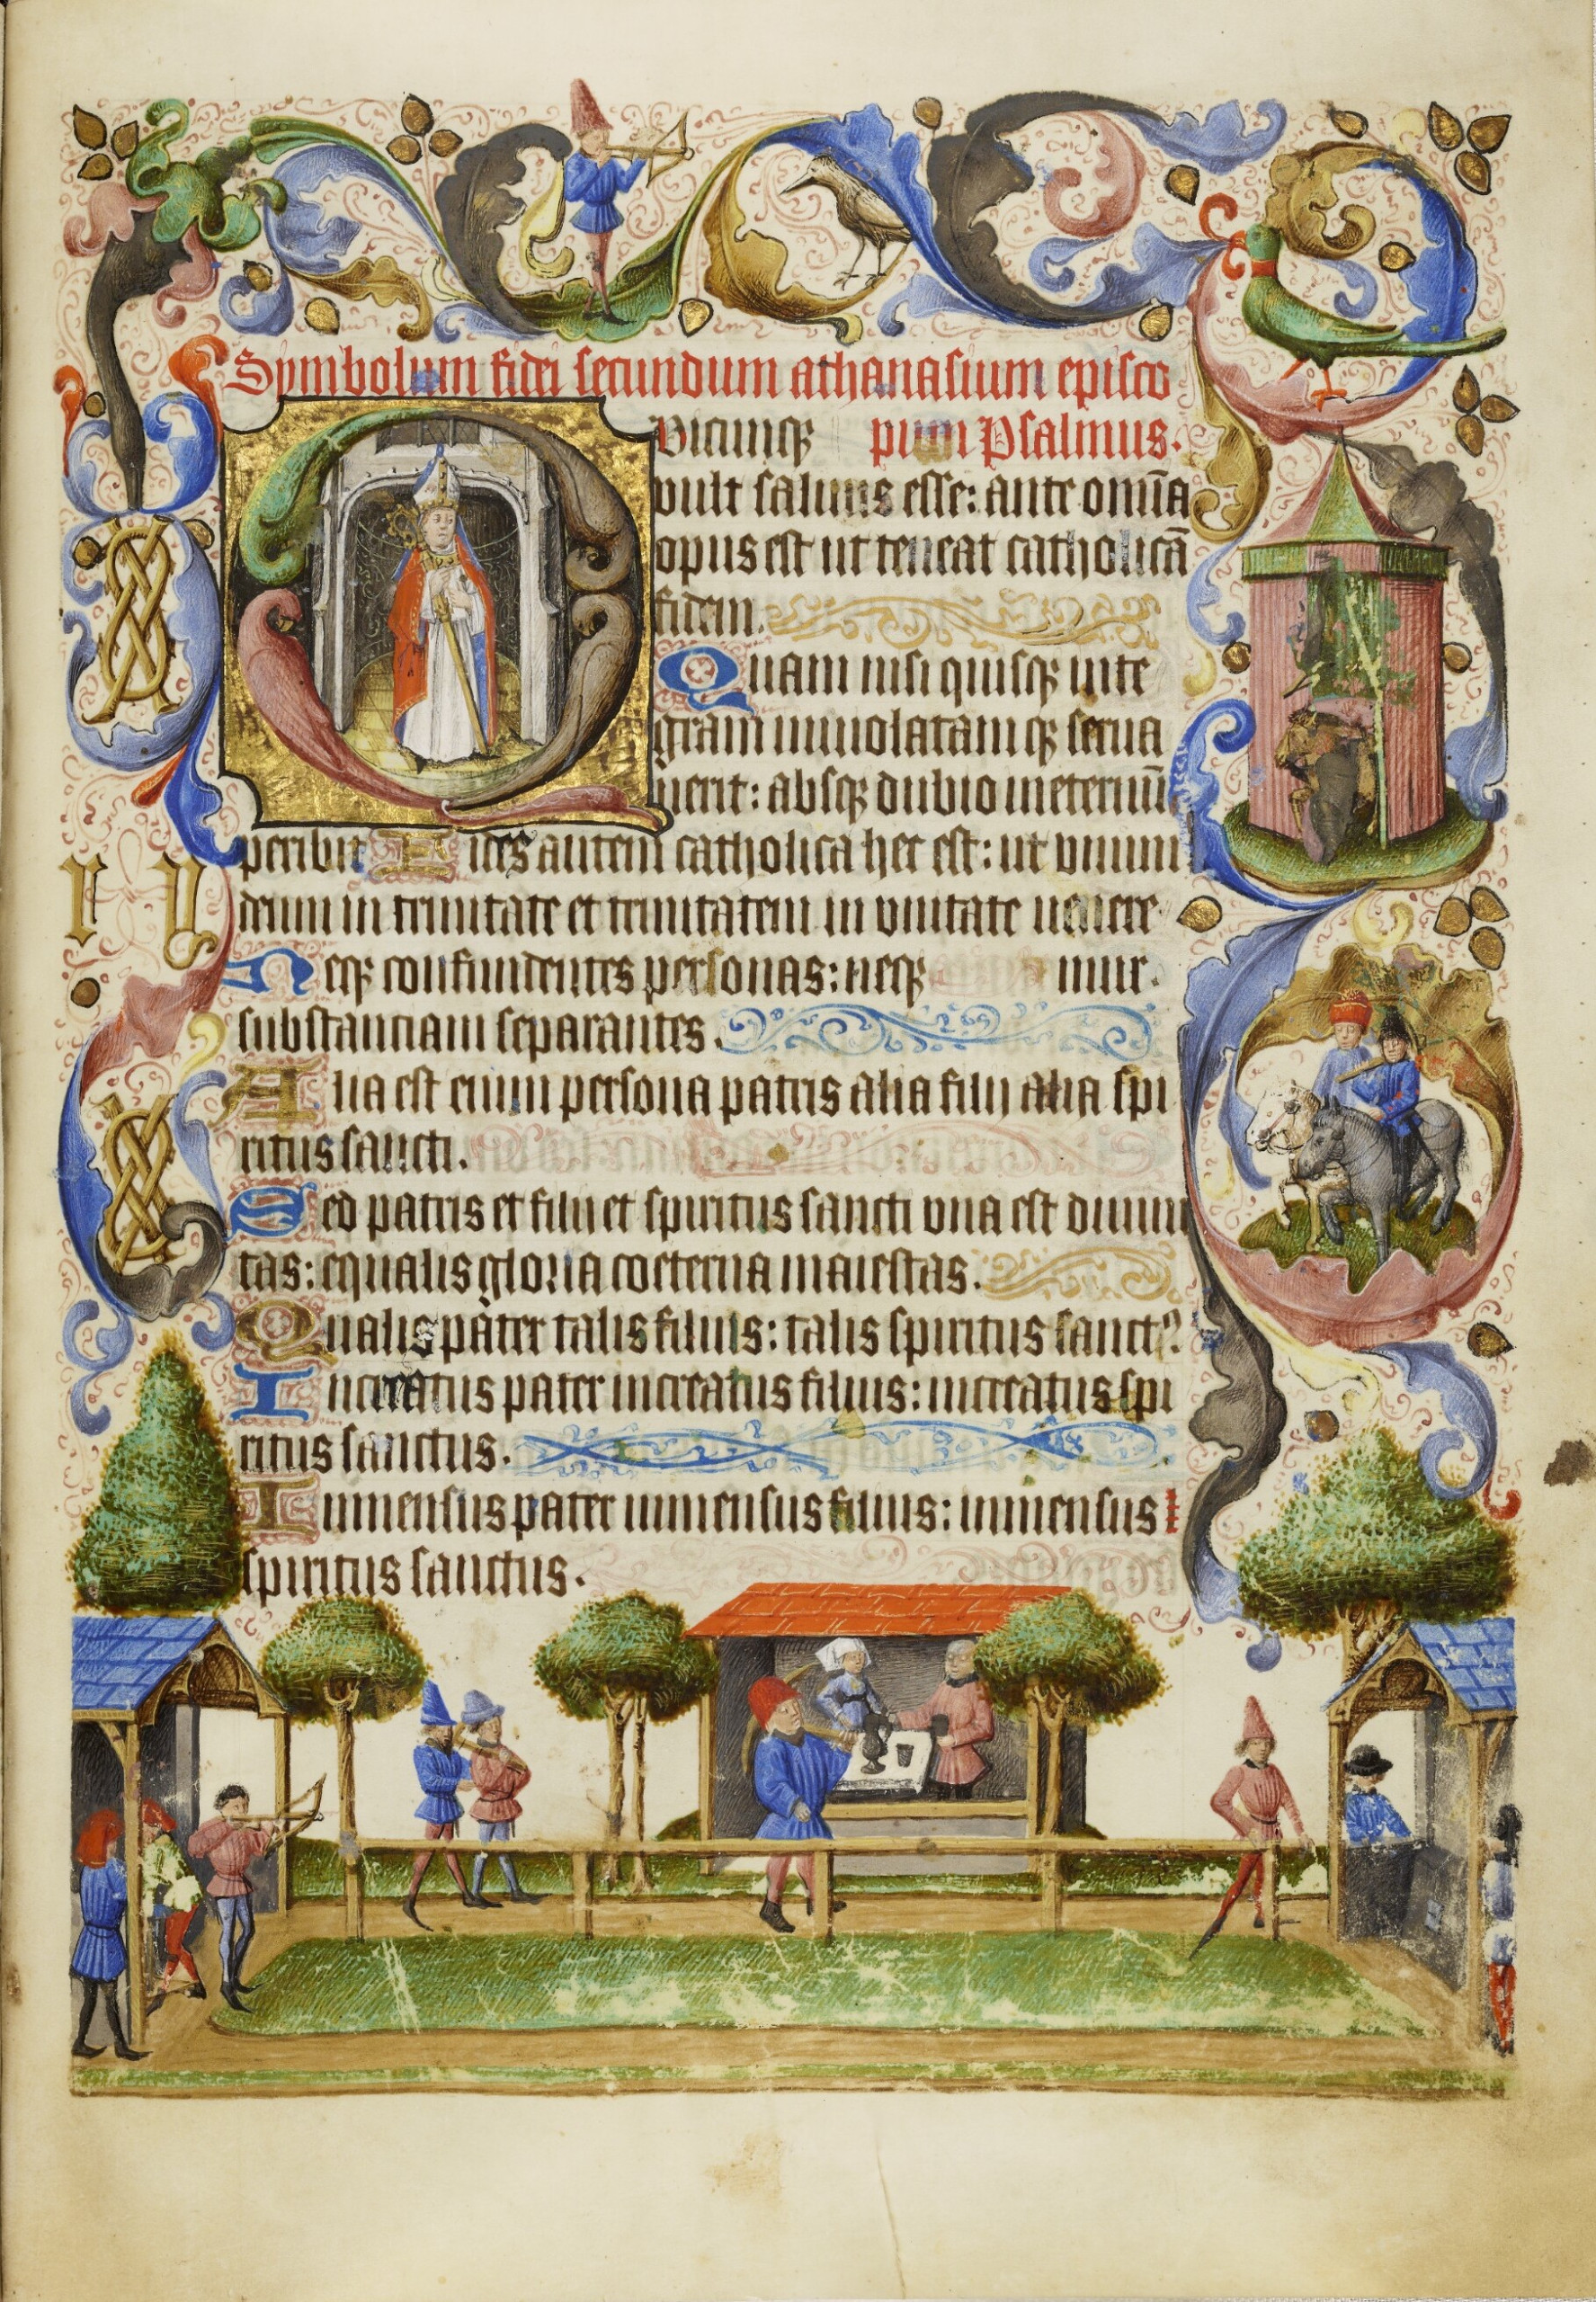 Symbolum fidei secundum athanasium episco
pum Psalmus.
Uicunqꝫ
vult saluus esse: ante om̄ia
opus est ut teneat catholicā
fidem.
Quam nisi quisqꝫ inte
gram inuiolatamqꝫ serua
uerit: absqꝫ dubio ineternū
peribit Fides autem catholica hec est: ut vnum
deum in trinitate et trinitatem in vnitate
Neqꝫ confundentes personas: neqꝫ
substantiam separantes.
Alia est enim persona patris alia filij alia spi
ritus sancti.
Sed patris et filij et spiritus sancti vna est diuini
tas: equalis gloria coeterna maiestas.
Qualis pater talis filius: talis spiritus sanctꝰ
Increatus pater increatus filius: increatus spi
ritus sanctus.
Immensus pater immensus filius: immensus
spiritus sanctus.